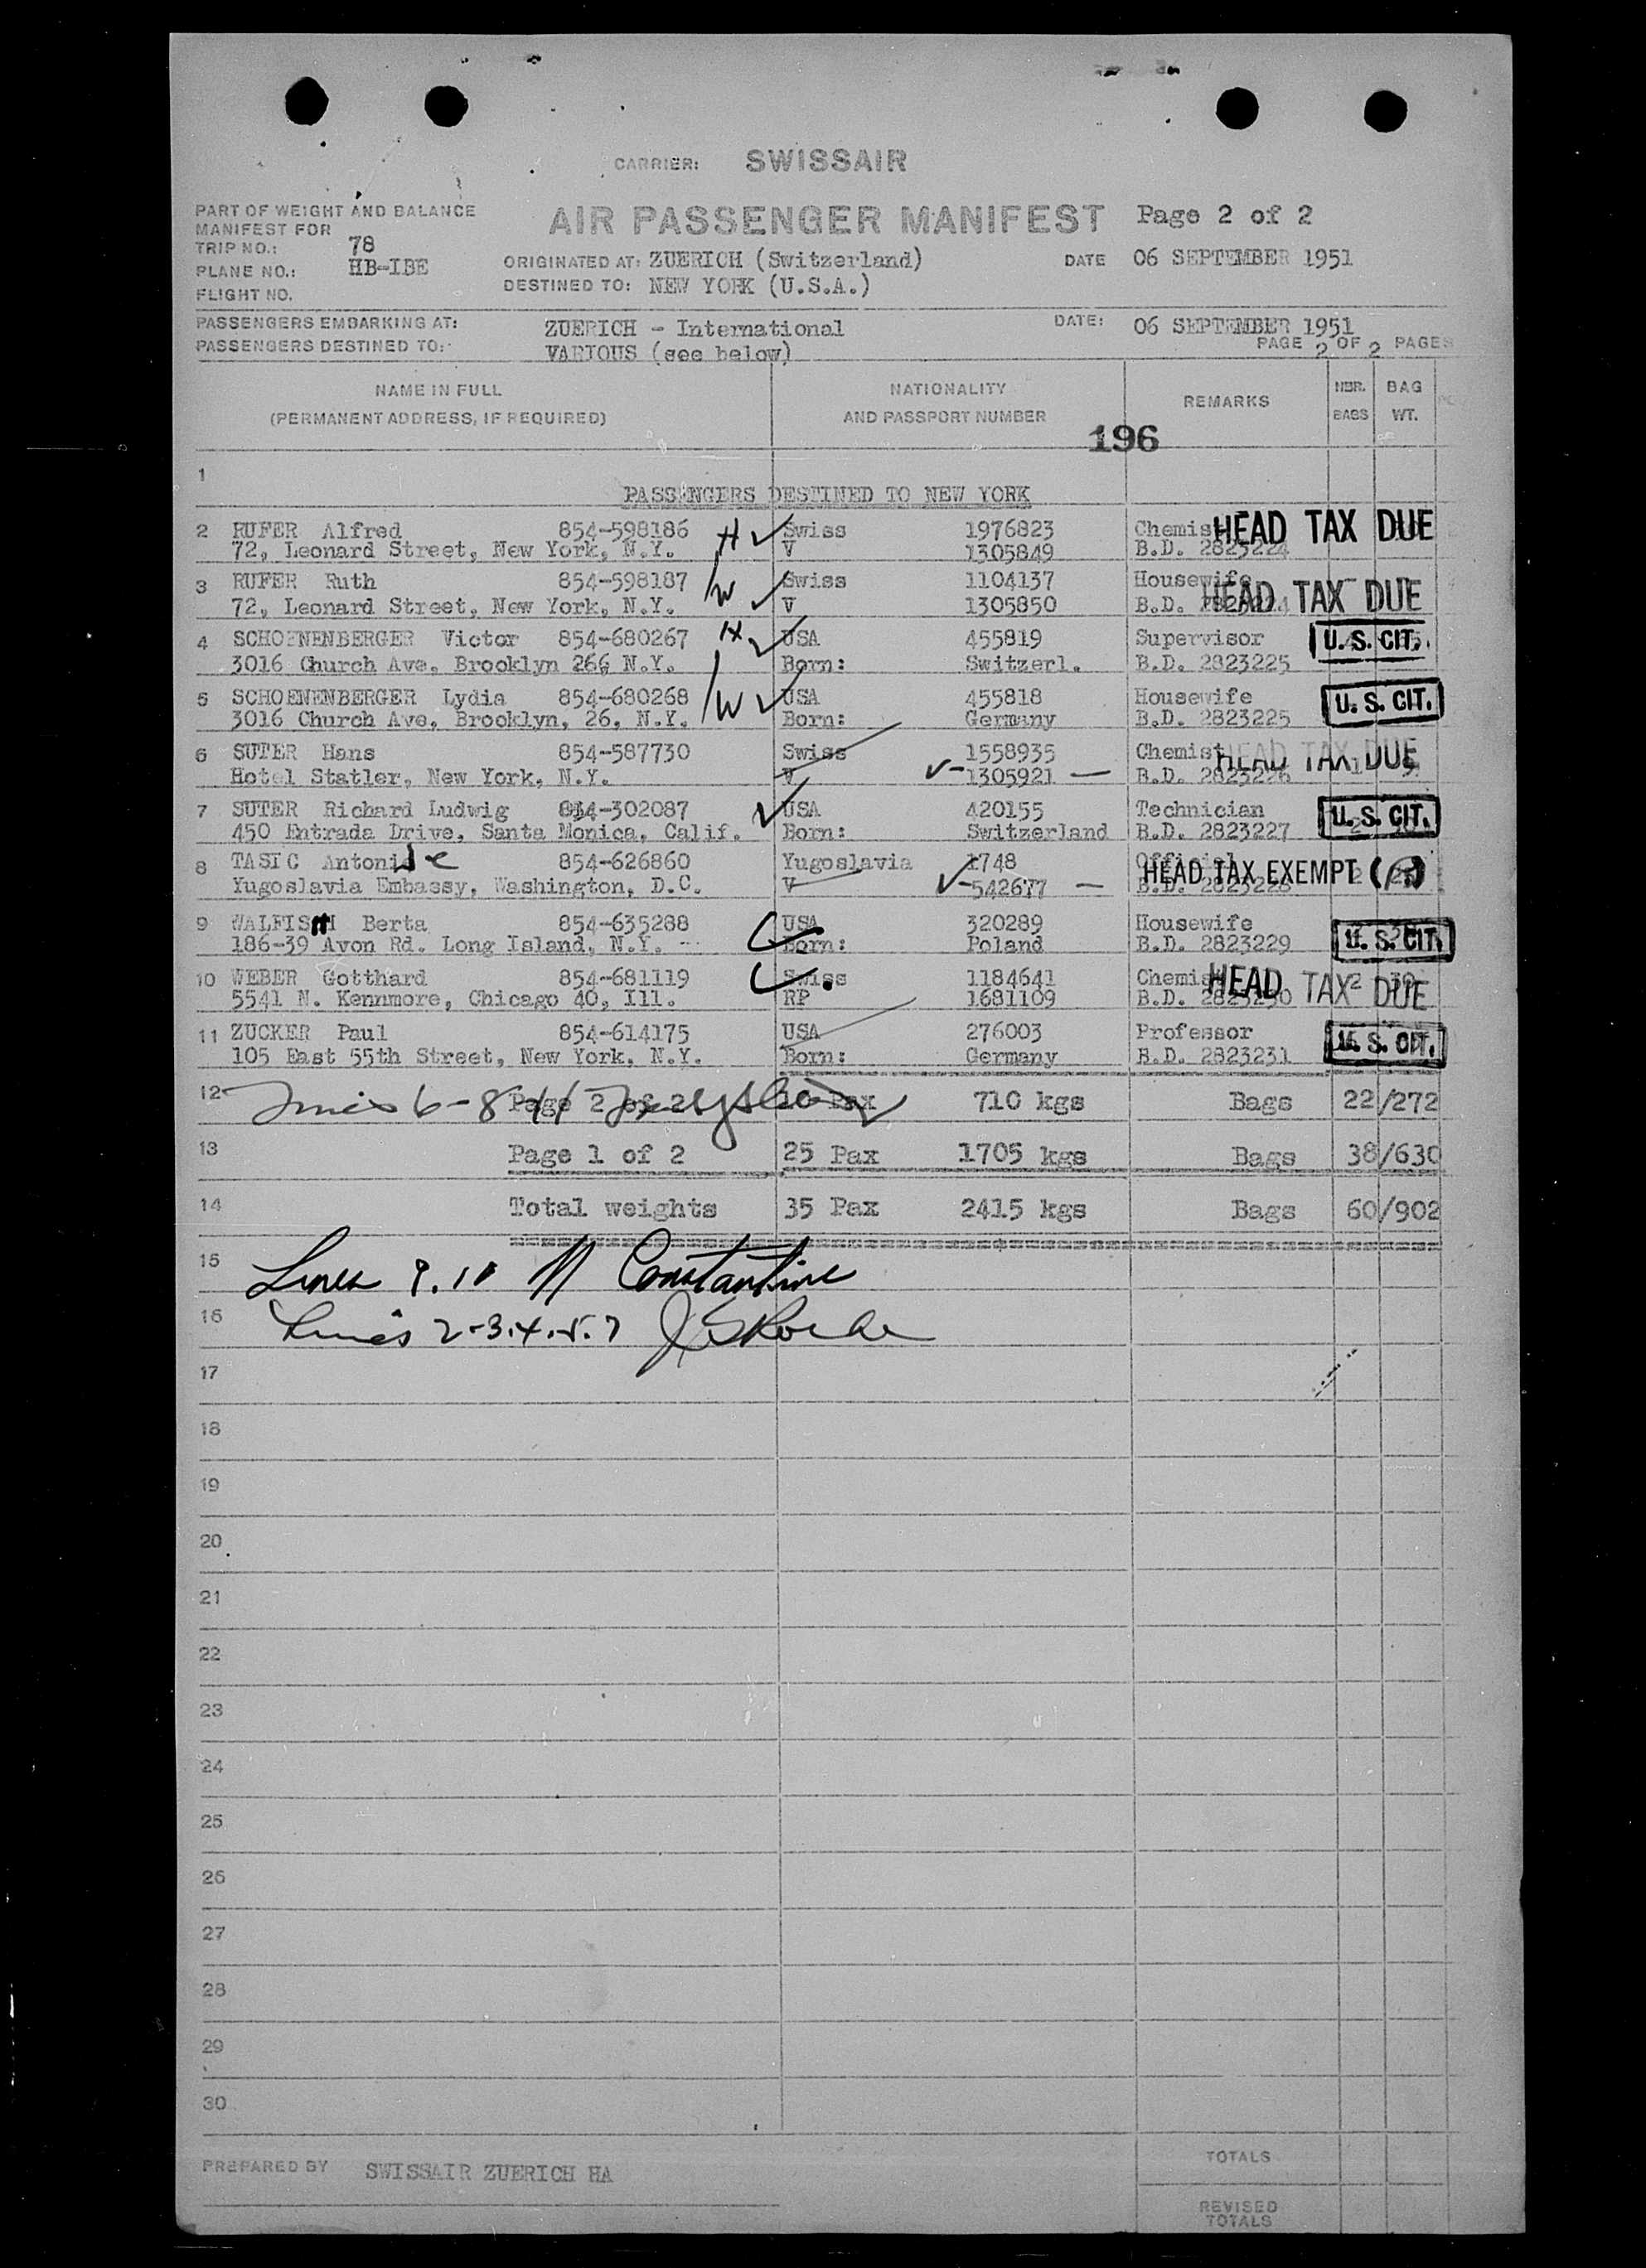 CARRIER: SWISSAIR
PART OF WEIGHT AND BALANCE
MANIFEST FOR
AIR PASSENGER MANIFEST Page 2 of 2
TRIP NO.: 78
PLANE NO.: HB-IBE
ORIGINATED AT: ZUERICH (Switzerland) DATE 06 SEPTEMBER 1951
FLIGHT NO.
DESTINED TO: NEW YORK (U.S.A.)
PASSENGERS EMBARKING AT: ZUERICH - International DATE: 06 SEPTEMBER 1951
PASSENGERS DESTINED TO: VARIOUS (see below) PAGE 2 OF 2 PAGES
NAME IN FULL NATIONALITY REMARKS NBR. BAG
(PERMANENT ADDRESS, IF REQUIRED) AND PASSPORT NUMBER BAGS WT.
196
1
PASSENGERS DESTINED TO NEW YORK
2 RUFER Alfred 854-598186 H Swiss 1976823 Chemist HEAD TAX DUE
72, Leonard Street, New York, N.Y. V 1305849 B.D. 2823224
3 RUFER Ruth 854-598187 W Swiss 1104137 Housewife HEAD TAX DUE
72, Leonard Street, New York, N.Y. V 1305850 B.D. 2823224
4 SCHOENENBERGER Victor 854-680267 H USA 455819 Supervisor U.S. CIT.
3016 Church Ave. Brooklyn 266 N.Y. Born: Switzerl. B.D. 2823225
5 SCHOENENBERGER Lydia 854-680268 W USA 455818 Housewife U.S. CIT.
3016 Church Ave, Brooklyn, 26, N.Y. Born: Germany B.D. 2823225
6 SUTER Hans 854-587730 Swiss 1558935 Chemist HEAD TAX DUE
Hotel Statler, New York, N.Y. V 1305921 B.D. 2823226
7 SUTER Richard Ludwig 854-302087 USA 420155 Technician U.S. CIT.
450 Entrada Drive, Santa Monica, Calif. Born: Switzerland B.D. 2823227
8 TASIC Antonije 854-626860 Yugoslavia 1748 Official HEAD TAX EXEMPT
Yugoslavia Embassy, Washington, D.C. V 542677 B.D. 2823228
9 WALFISH Berta 854-635288 USA 320289 Housewife U.S. CIT.
186-39 Avon Rd. Long Island, N.Y. Born: Poland B.D. 2823229
10 WEBER Gotthard 854-681119 Swiss 1184641 Chemist HEAD TAX DUE
5541 N. Kennmore, Chicago 40, Ill. RP 1681109 B.D. 2823230
11 ZUCKER Paul 854-614175 USA 276003 Professor U.S. CIT.
105 East 55th Street, New York, N.Y. Born: Germany B.D. 2823231
12 Lines 6-8-11 Page 2 of 2 10 Pax 710 kgs Bags 22/272
13 Page 1 of 2 25 Pax 1705 kgs Bags 38/630
14 Total weights 35 Pax 2415 kgs Bags 60/902
15 Lines 9.10 M Constantine
16 Lines 2-3.4.5.7
17
18
19
20
21
22
23
24
25
26
27
28
29
30
PREPARED BY SWISSAIR ZUERICH HA TOTALS
REVISED
TOTALS